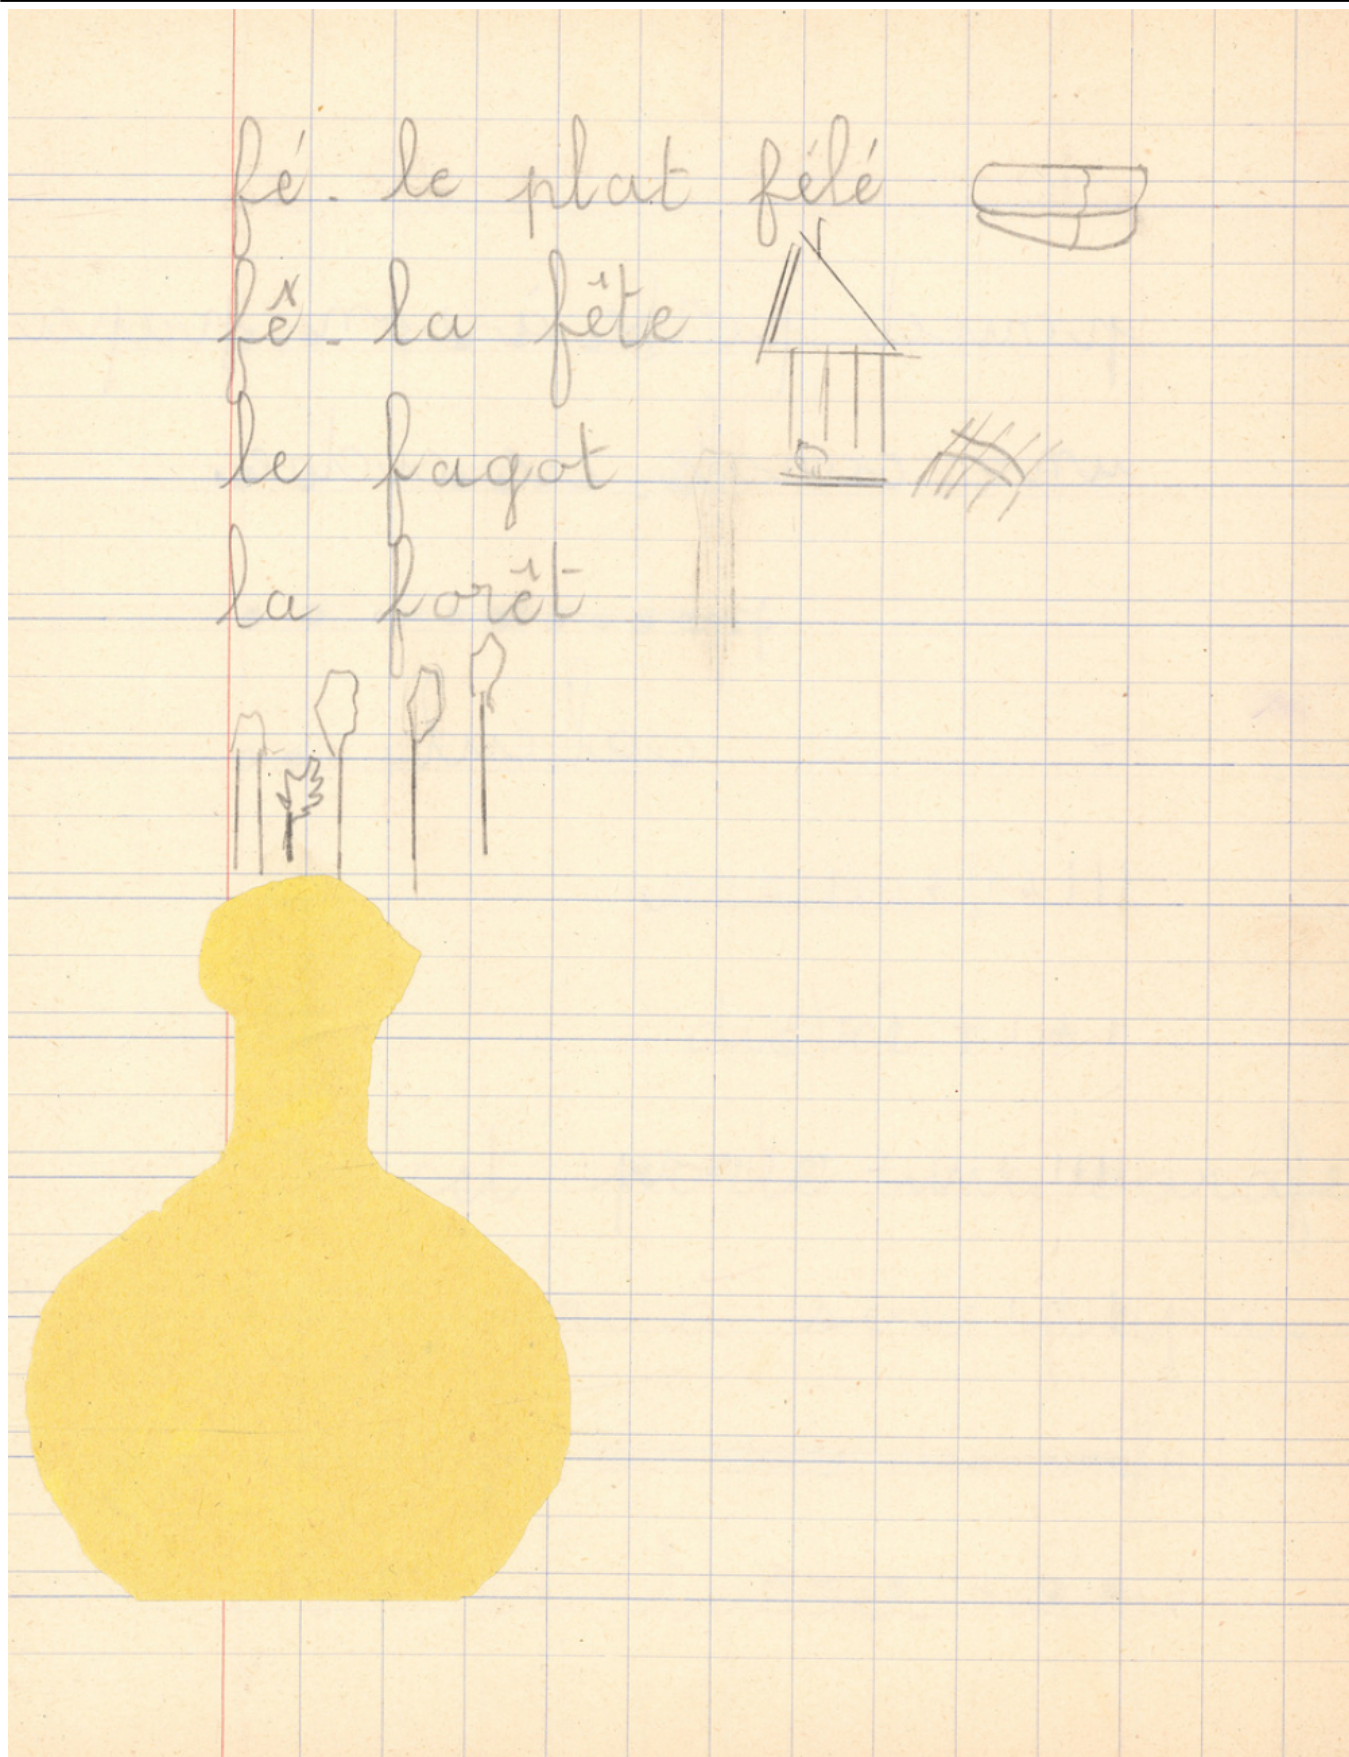 fé. le plat fêlé
fê. la fête
le fagot
la forêt